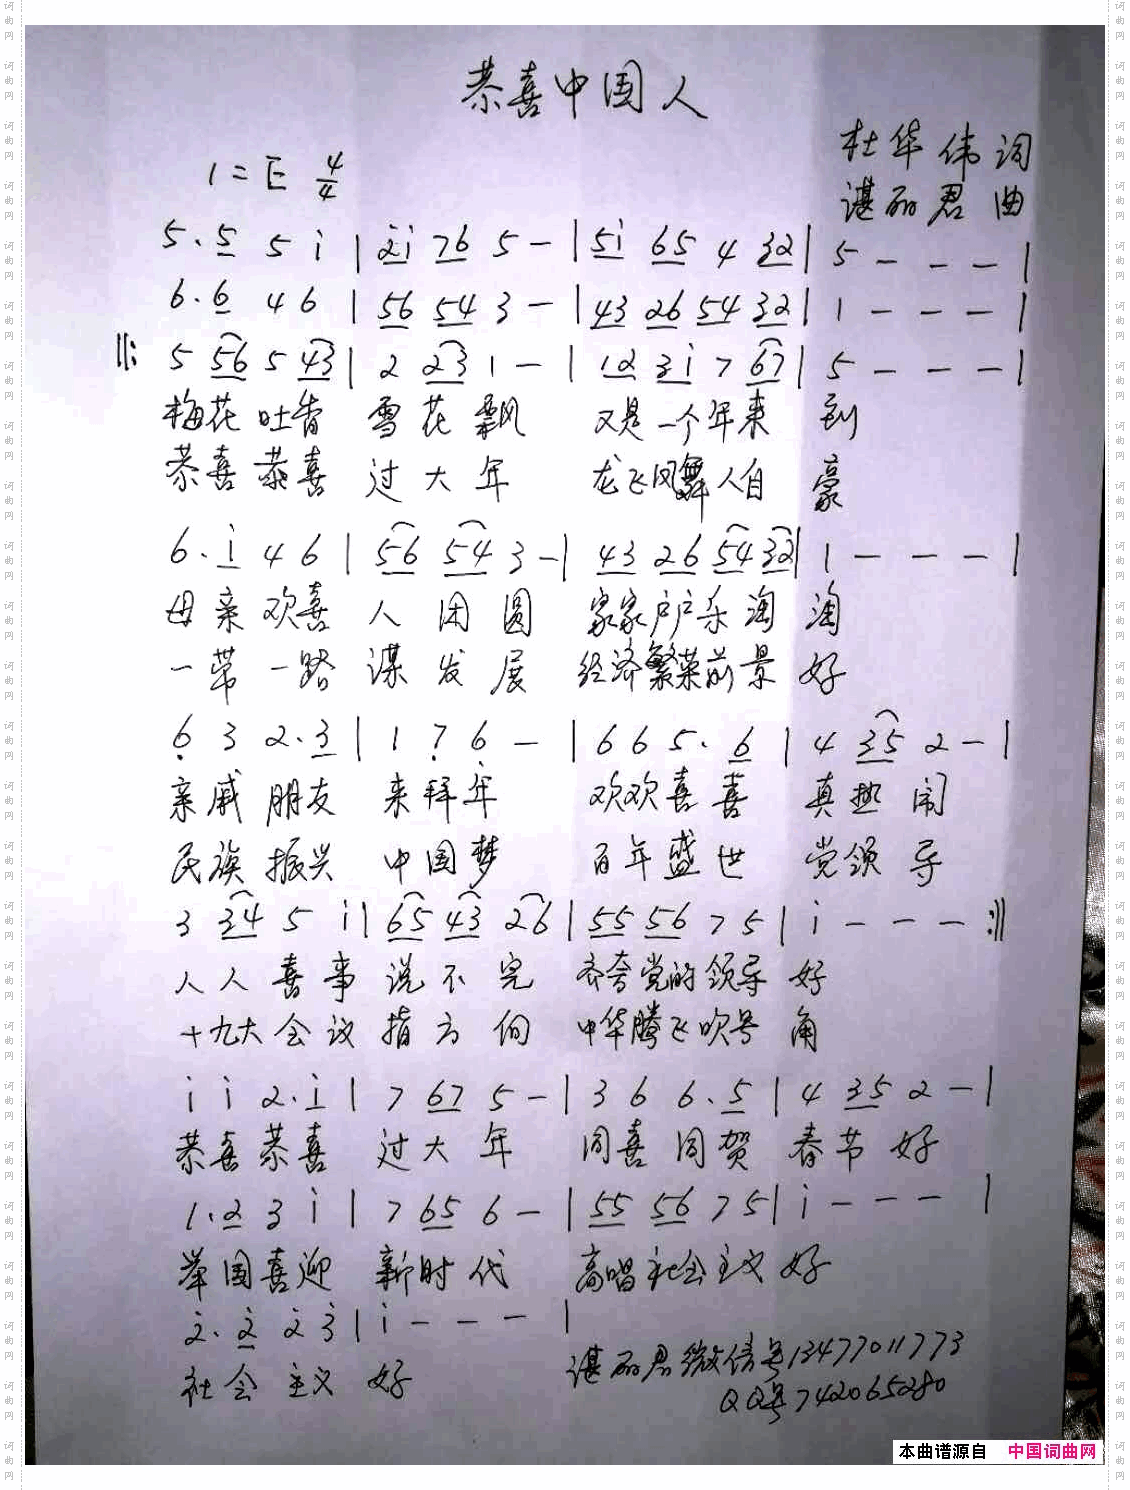 恭喜中国人
杜华伟 词
1=E 4/4
谌丽君 曲
5. 5 5 i | 2i 76 5 - | 5i 65 4 32 | 5 - - - |
6. 6 4 6 | 56 54 3 - | 43 26 54 32 | 1 - - - |
‖: 5 56 5 43 | 2 23 1 - | 12 3i 7 67 | 5 - - - |
梅花吐香 雪花飘 又是一个年来 到
恭喜恭喜 过大年 龙飞凤舞人自 豪
6. i 4 6 | 56 54 3 - | 43 26 54 32 | 1 - - - |
母亲欢喜 人团圆 家家户户乐淘 淘
一带一路 谋发展 经济繁荣前景 好
6 3 2. 3 | 1 7 6 - | 6 6 5. 6 | 4 35 2 - |
亲戚朋友 来拜年 欢欢喜喜 真热闹
民族振兴 中国梦 百年盛世 党领导
3 34 5 i | 65 43 26 | 55 56 7 5 | i - - - :‖
人人喜事 说不完 齐夸党的领导 好
十九大会议 指方向 中华腾飞吹号 角
i i 2. i | 7 67 5 - | 3 6 6. 5 | 4 35 2 - |
恭喜恭喜 过大年 同喜同贺 春节好
1. 2 3 i | 7 65 6 - | 55 56 7 5 | i - - - |
举国喜迎 新时代 高唱社会主义 好
2. 2 2 3 | i - - - |
社会主义 好
谌丽君微信号13477011773
QQ号742065280
本曲谱源自 中国词曲网